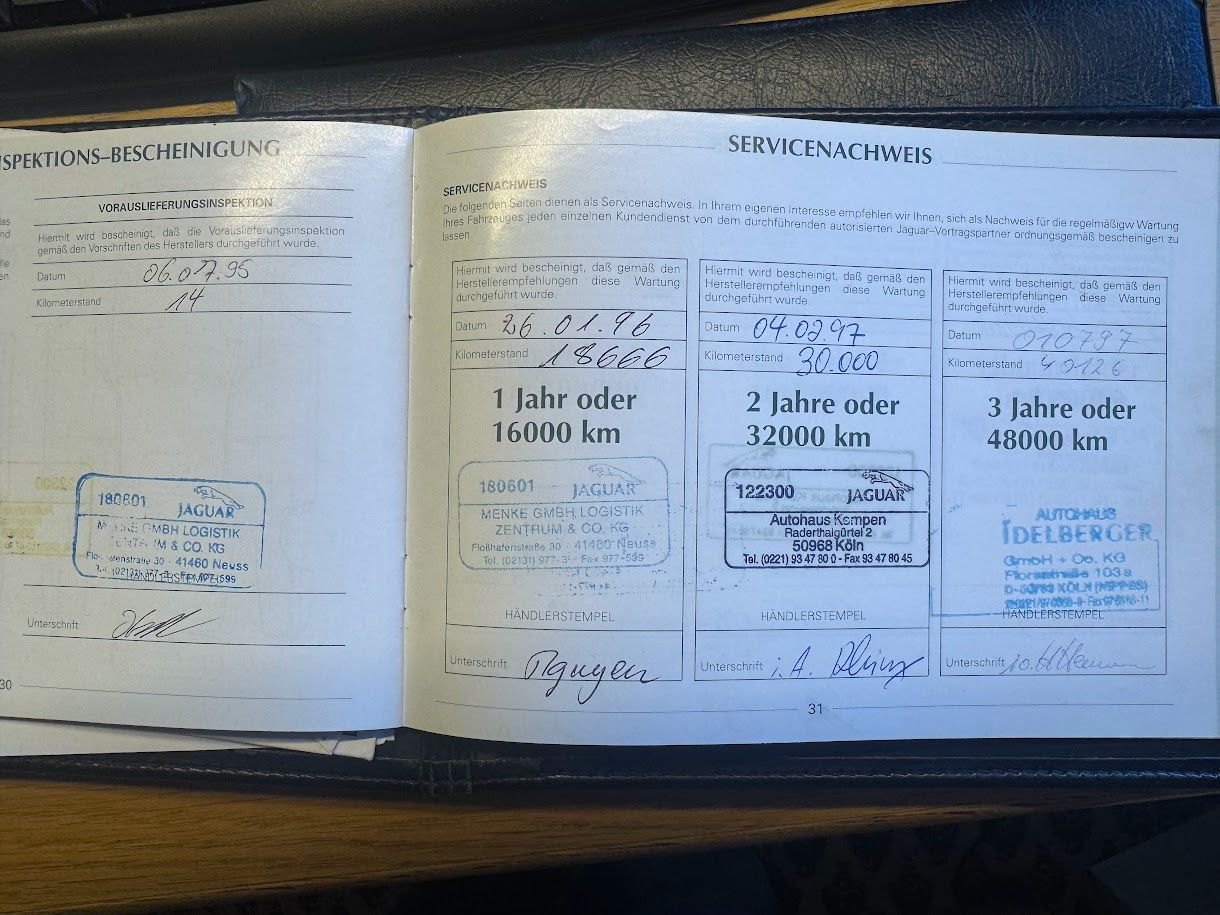 NSPEKTIONS–BESCHEINIGUNG
VORAUSLIEFERUNGSINSPEKTION
Hiermit wird bescheinigt, daß die Vorauslieferungsinspektion
gemäß den Vorschriften des Herstellers durchgeführt wurde.
Datum 06.07.95
Kilometerstand 14
180601 JAGUAR
MENKE GMBH LOGISTIK
ZENTRUM & CO. KG
41460 Neuss
HÄNDLERSTEMPEL
Unterschrift
30
SERVICENACHWEIS
SERVICENACHWEIS
Die folgenden Seiten dienen als Servicenachweis. In Ihrem eigenen Interesse empfehlen wir Ihnen, sich als Nachweis für die regelmäßigw Wartung
Ihres Fahrzeuges jeden einzelnen Kundendienst von dem durchführenden autorisierten Jaguar–Vertragspartner ordnungsgemäß bescheinigen zu
lassen.
Hiermit wird bescheinigt, daß gemäß den
Herstellerempfehlungen diese Wartung
durchgeführt wurde.
Datum 26.01.96
Kilometerstand 18666
1 Jahr oder
16000 km
180601 JAGUAR
MENKE GMBH LOGISTIK
ZENTRUM & CO. KG
Floßhafenstraße 30 · 41460 Neuss
HÄNDLERSTEMPEL
Unterschrift Nguyen
Hiermit wird bescheinigt, daß gemäß den
Herstellerempfehlungen diese Wartung
durchgeführt wurde.
Datum 04.02.97
Kilometerstand 30.000
2 Jahre oder
32000 km
122300 JAGUAR
Autohaus Kempen
Raderthalgürtel 2
50968 Köln
Tel. (0221) 93 47 80 0 - Fax 93 47 80 45
HÄNDLERSTEMPEL
Unterschrift i.A.
Hiermit wird bescheinigt, daß gemäß den
Herstellerempfehlungen diese Wartung
durchgeführt wurde.
Datum 010797
Kilometerstand 40126
3 Jahre oder
48000 km
AUTOHAUS
IDELBERGER
GmbH + Co. KG
103a
KÖLN
HÄNDLERSTEMPEL
Unterschrift
31